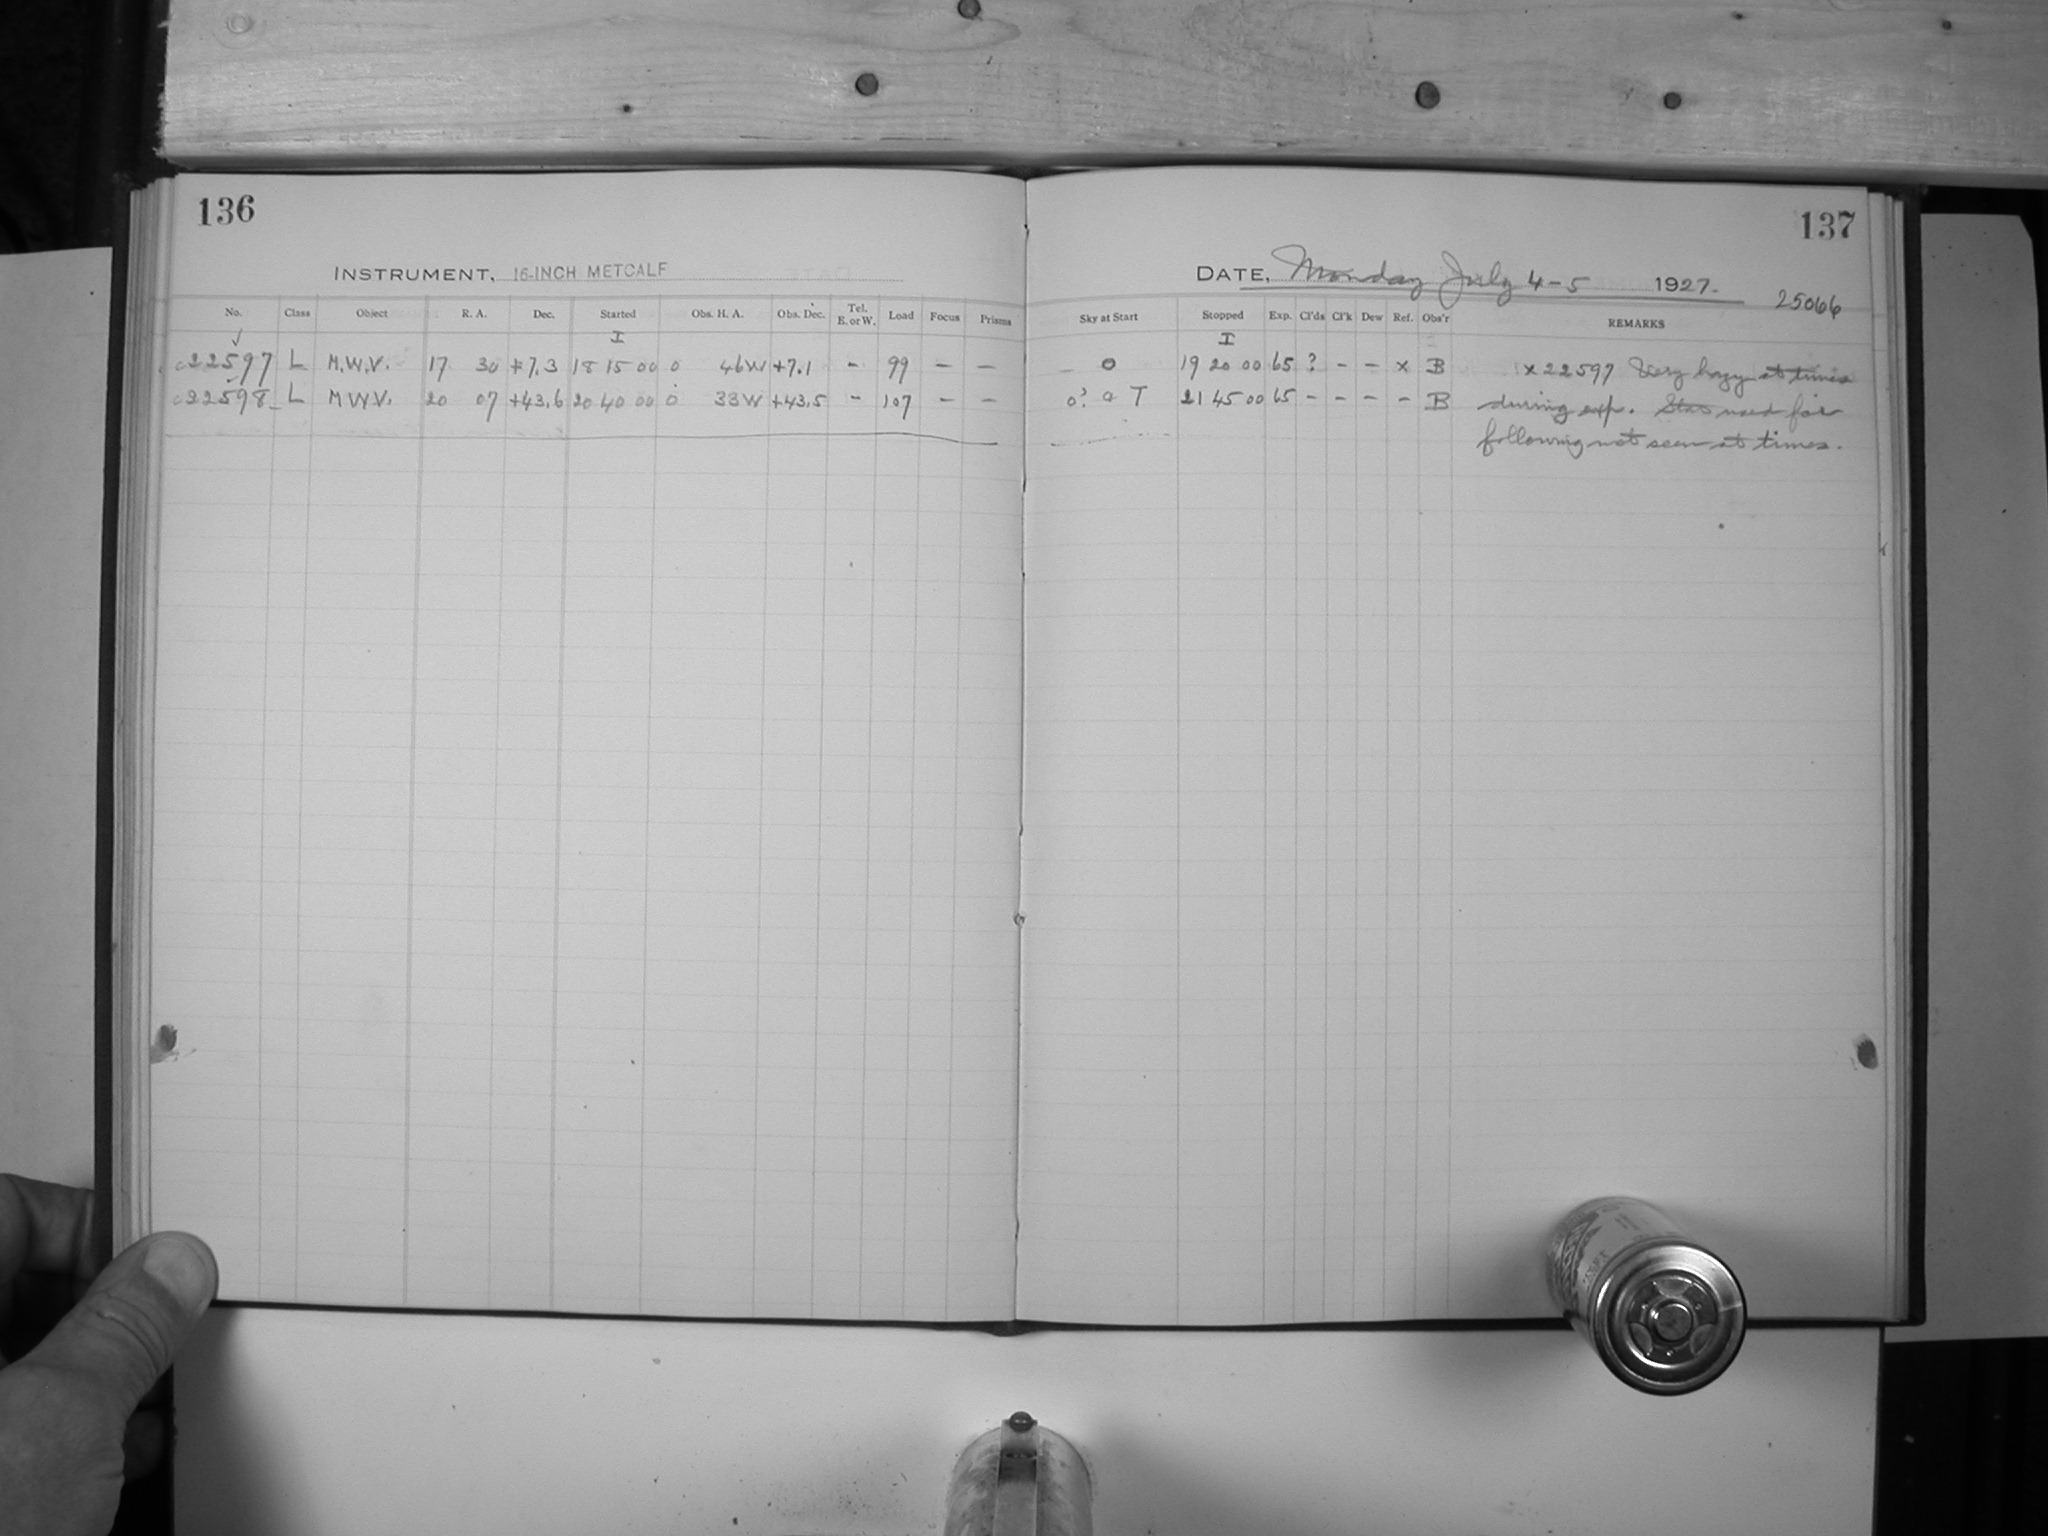 136
137
INSTRUMENT, 16-INCH METCALF
DATE, Monday July 4-5 1927.
25066
No. Class Object R. A. Dec. Started Obs. H. A. Obs. Dec. Tel. E. or W. Load Focus Prisms
Sky at Start Stopped Exp. Cl'ds Cl'k Dew Ref. Obs'r REMARKS
I I
22597 L M.W.V. 17 30 +7.3 18 15 00 0 46W +7.1 - 99 - - 0 19 20 00 65 ? - - x B x 22597 Very hazy at times
22598 L M.W.V. 20 07 +43.6 20 40 00 0 33W +43.5 - 107 - - 0? a T 21 45 00 65 - - - - B during exp. Star used for
following not seen at times.